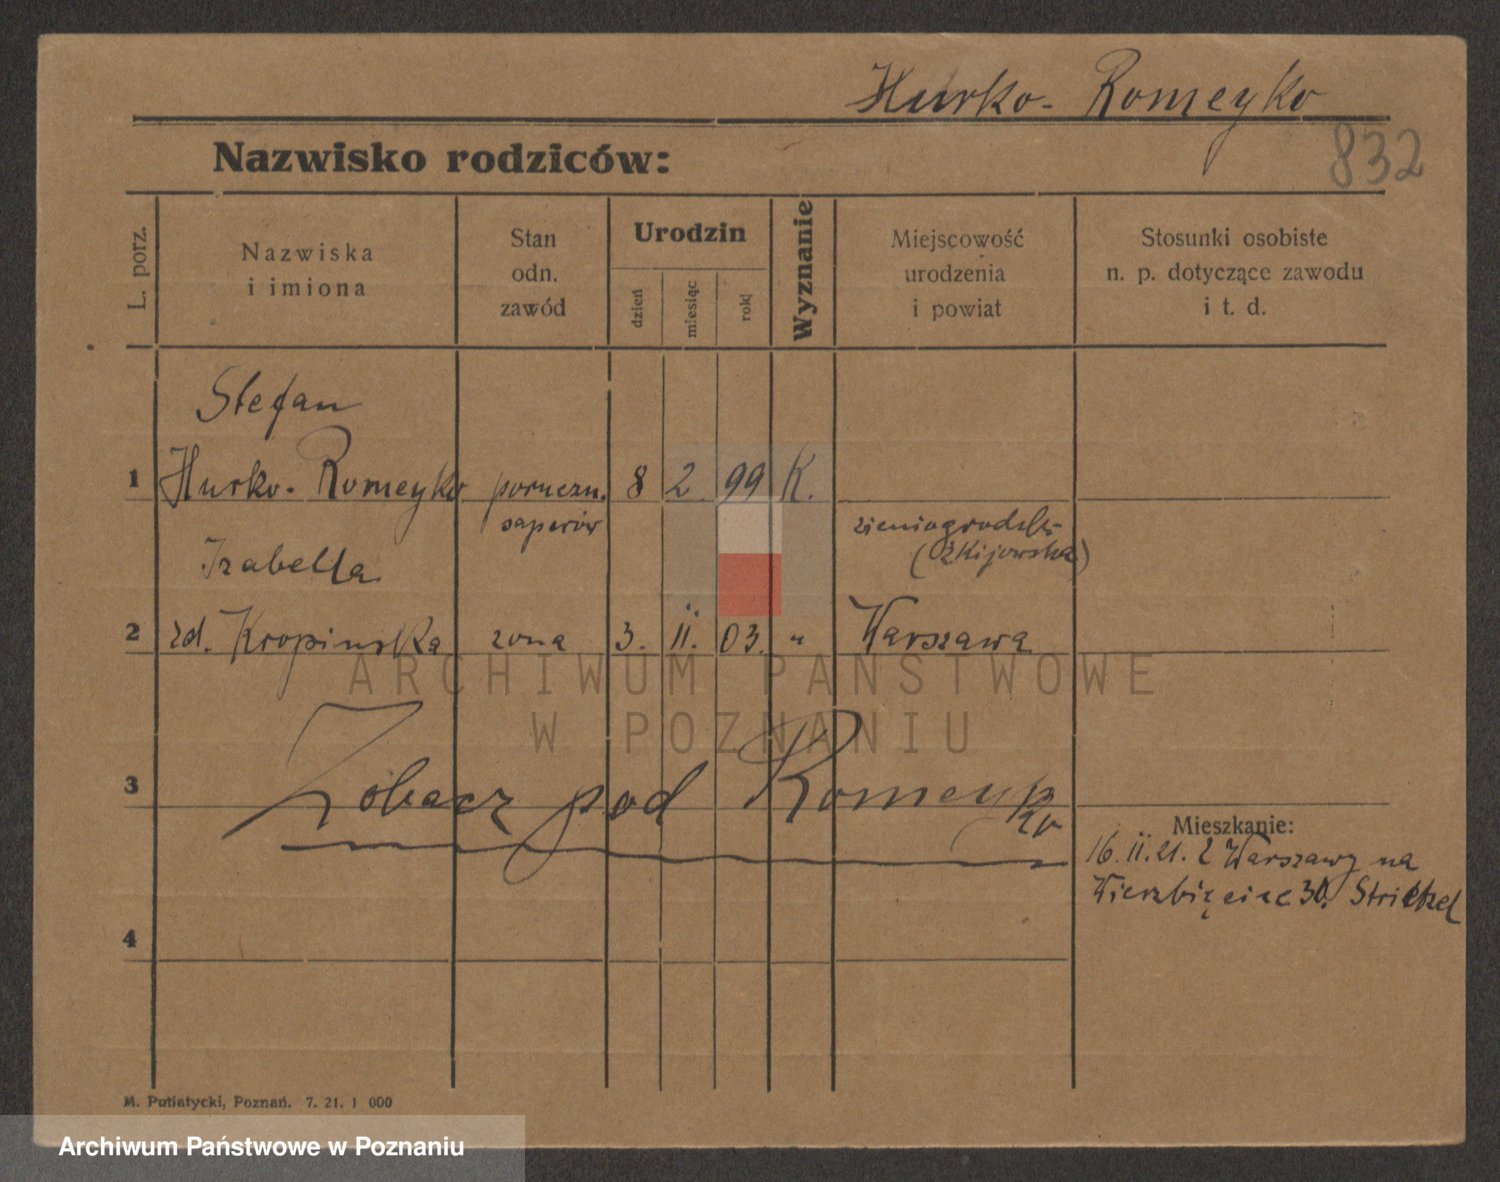 Hurko-Romeyko
832
Nazwisko rodziców:
L. porz.
Nazwiska
i imiona
Stan
odn.
zawód
Urodzin
dzień
miesiąc
rok
Wyznanie
Miejscowość
urodzenia
i powiat
Stosunki osobiste
n. p. dotyczące zawodu
i t. d.
Stefan
1 Hurko-Romeyko poruczn. 8 2. 99 K.
saperów
(Kijowska)
Izabella
2 zd. Kropinska zona 3. II. 03. " Warszawa
3 Zobacz pod Romeyko
Mieszkanie:
16. II. 21. z Warszawy na
Wierzbięcice 30.
4
M. Putiatycki, Poznań. 7. 21. 1 000
ARCHIWUM PAŃSTWOWE
W POZNANIU
Archiwum Państwowe w Poznaniu